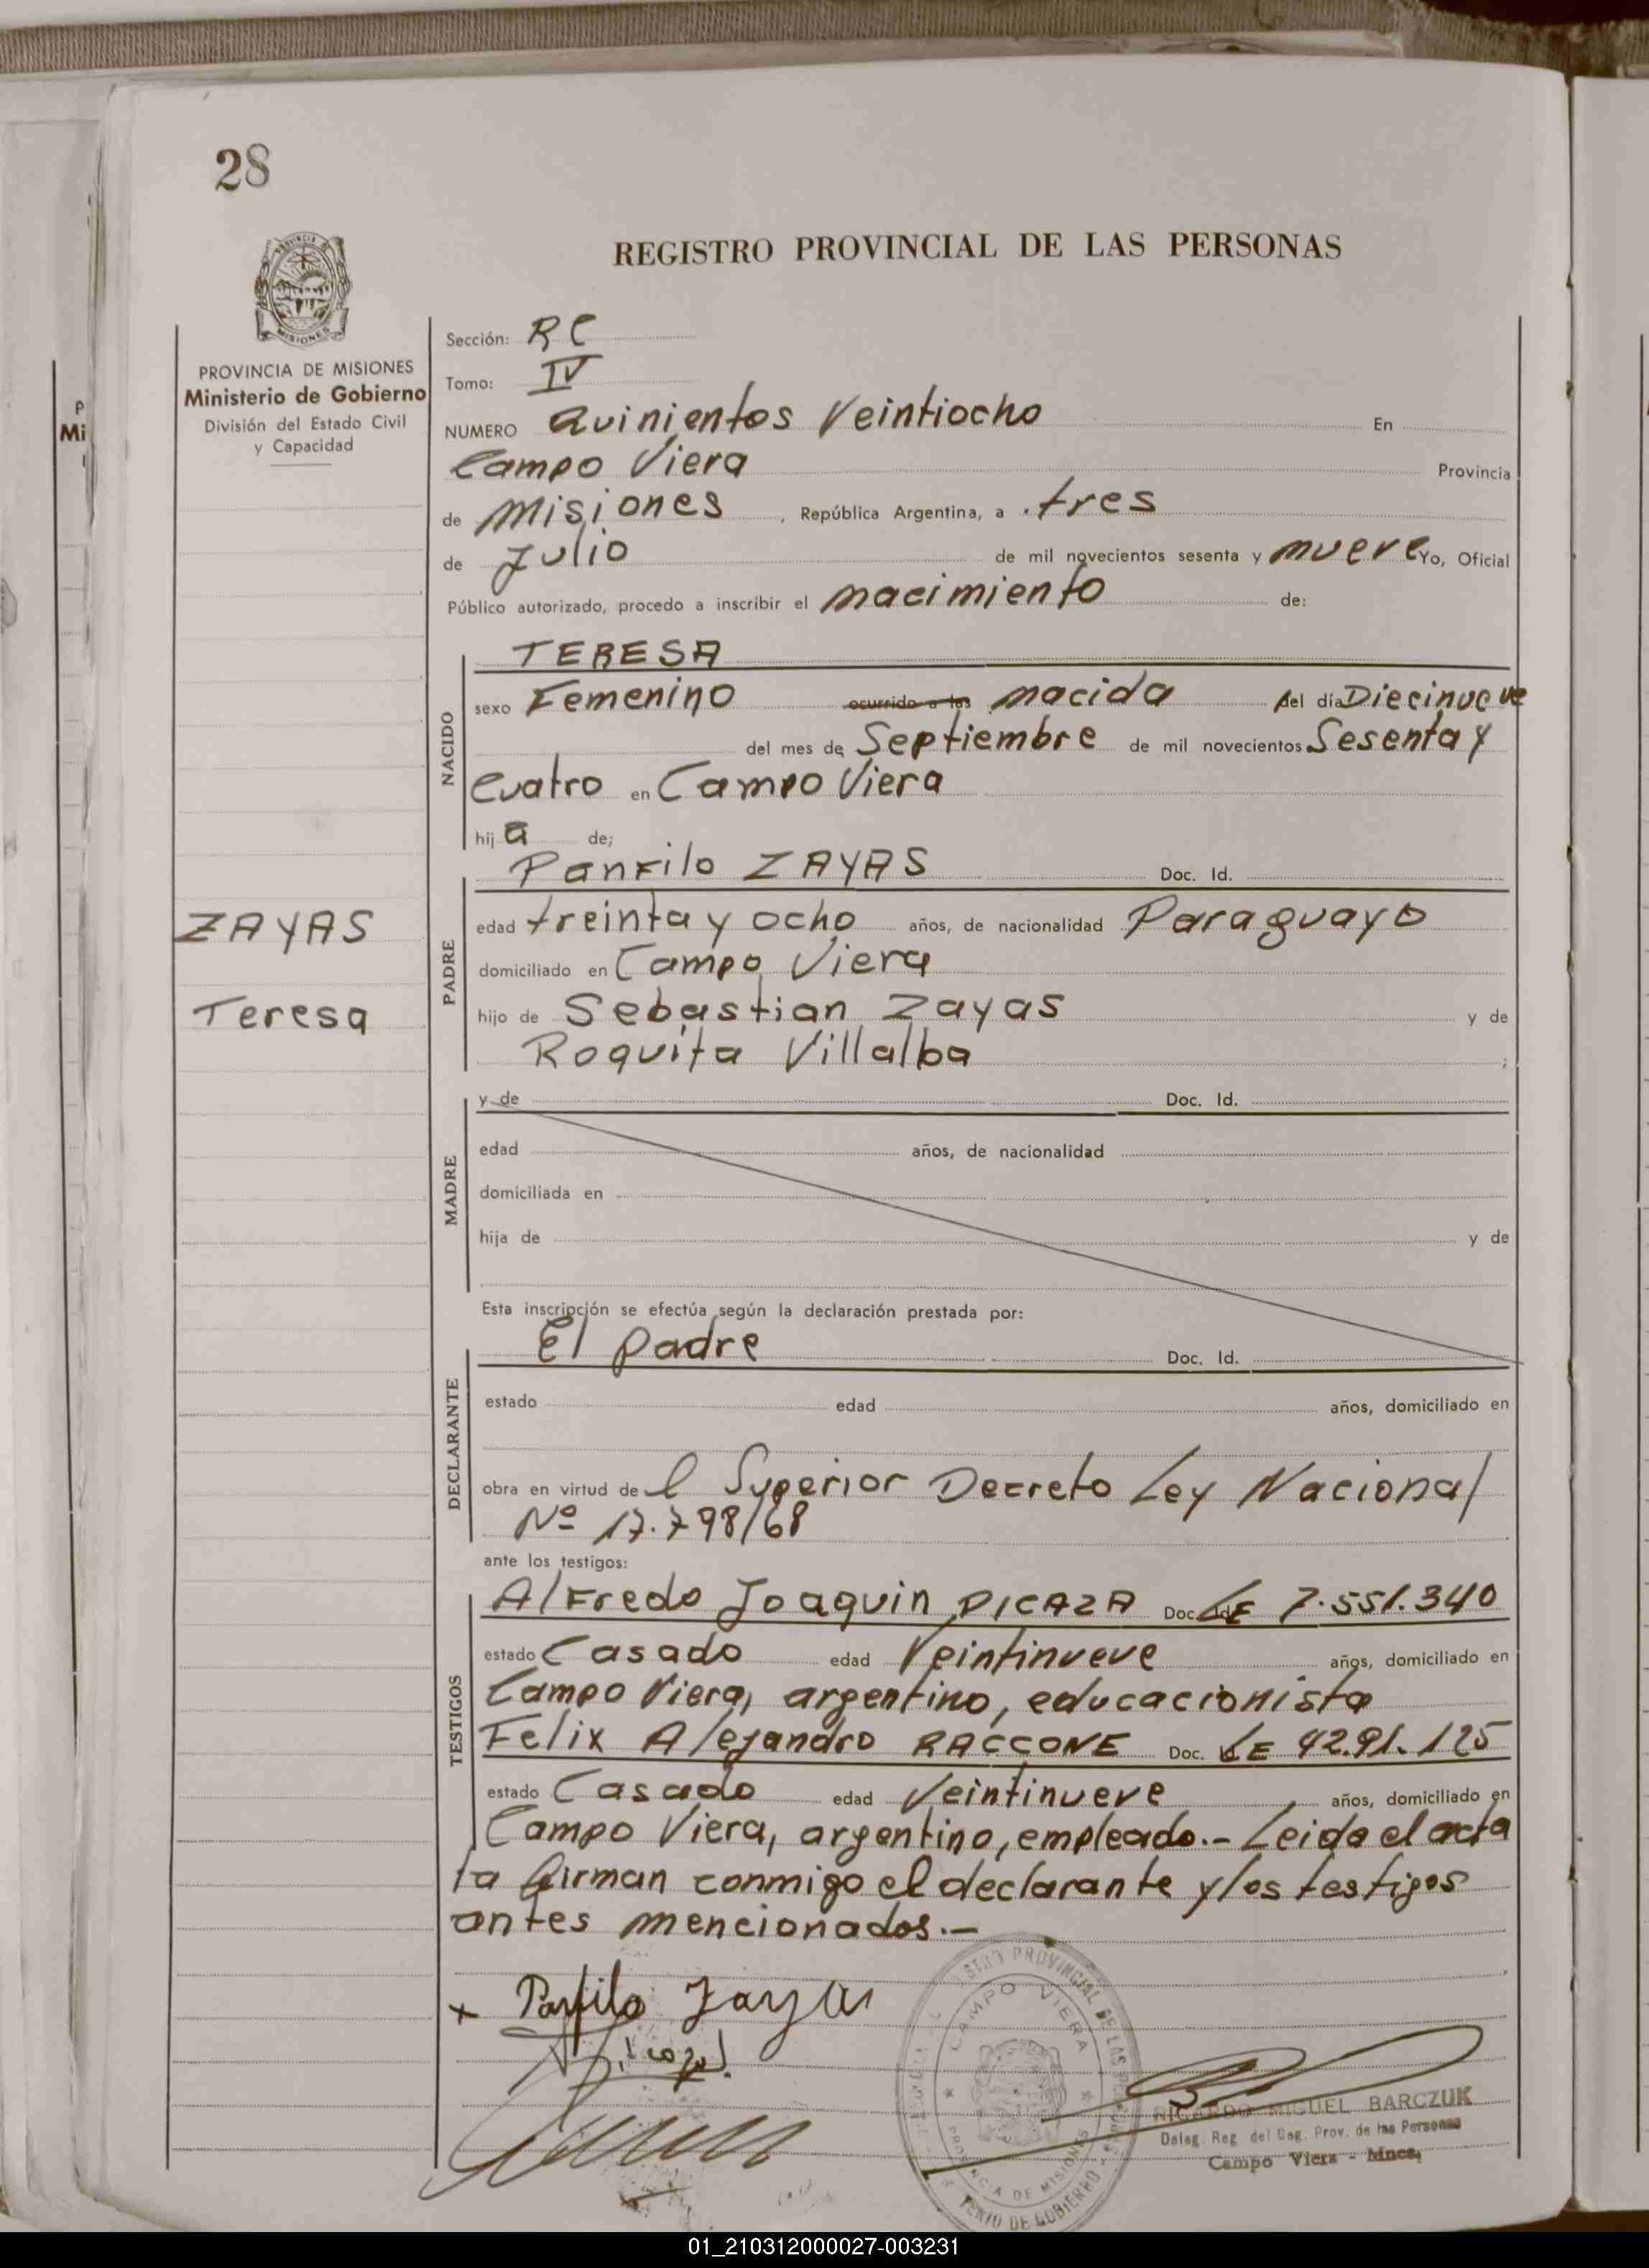 28
PROVINCIA DE
MISIONES
PROVINCIA DE MISIONES
Ministerio de Gobierno
División del Estado Civil
y Capacidad
P
Mi
REGISTRO PROVINCIAL DE LAS PERSONAS
Sección: RC
Tomo: IV
NUMERO Quinientos Veintiocho En
Campo Viera Provincia
de Misiones , República Argentina, a tres
de Julio de mil novecientos sesenta y nueve Yo, Oficial
Público autorizado, procedo a inscribir el nacimiento de:
NACIDO
TERESA
sexo Femenino ocurrido a las nacida del día Diecinueve
del mes de Septiembre de mil novecientos Sesenta y
cuatro en Campo Viera
hij a de;
ZAYAS
Teresa
PADRE
Panfilo ZAYAS Doc. Id.
edad treinta y ocho años, de nacionalidad Paraguayo
domiciliado en Campo Viera
hijo de Sebastian Zayas y de
Roquita Villalba ;
MADRE
y de Doc. Id.
edad años, de nacionalidad
domiciliada en
hija de y de
Esta inscripción se efectúa según la declaración prestada por:
DECLARANTE
El padre Doc. Id.
estado edad años, domiciliado en
obra en virtud de l Superior Decreto Ley Nacional
Nº 17.798/68
ante los testigos:
TESTIGOS
Alfredo Joaquin PICAZA Doc. LE 7.551.340
estado Casado edad Veintinueve años, domiciliado en
Campo Viera, argentino, educacionista
Felix Alejandro RACCONE Doc. LE 42.91.125
estado Casado edad Veintinueve años, domiciliado en
Campo Viera, argentino, empleado.- Leida el acta
la firman conmigo el declarante y los testigos
antes mencionados.-
x Panfilo Zayas
CAMPO VIERA
PROVINCIA DE MISIONES
RICARDO MIGUEL BARCZUK
Deleg. Reg. del Reg. Prov. de las Personas
Campo Viera - Mnes.
01_210312000027-003231